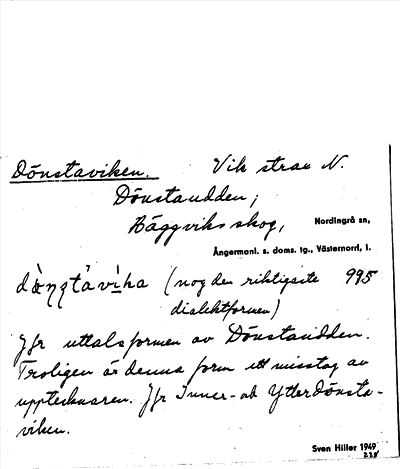 Dönstaviken. Vik strax N.
Dönstaudden;
Häggviks skog, Nordingrå sn,
Ångermanl. s. doms. tg., Västernord, l.
(nog den riktigaste 995
dialektformen)
Jfr uttalsformen av Dönstaudden.
Troligen är denna form ett misstag av
upptecknaren. Jfr Inner- och YtterDönsta-
viken.
Sven Hiller 1949